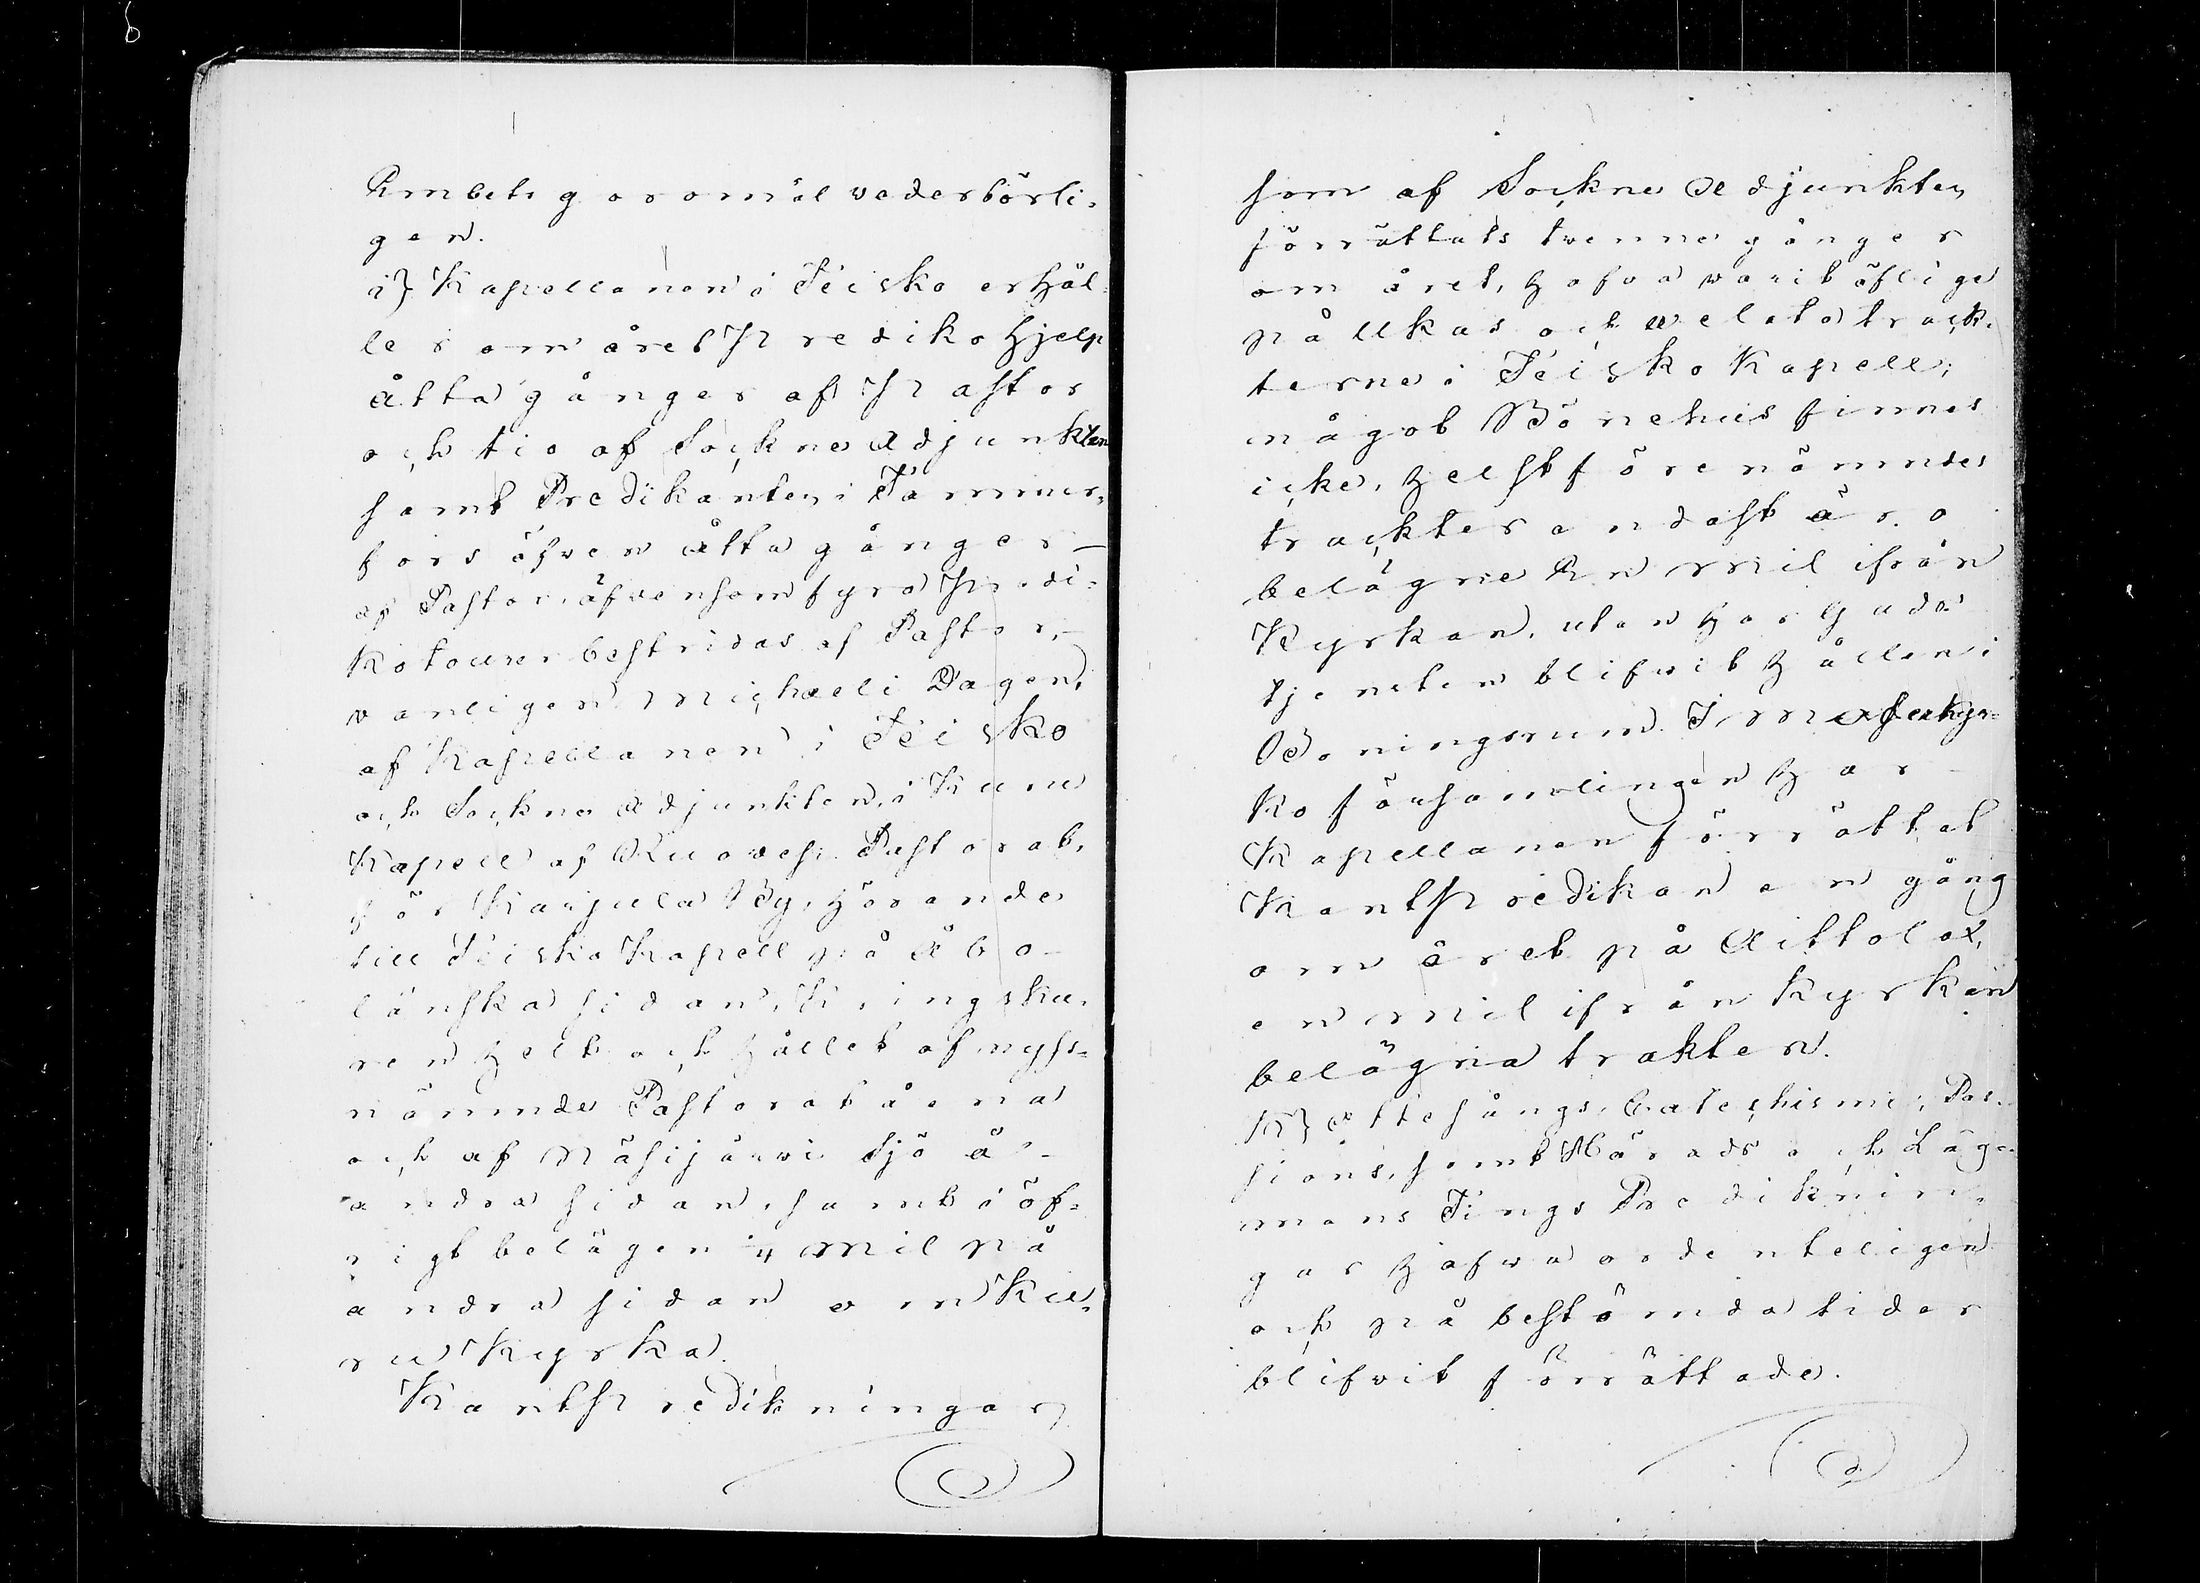 Embetsgöromål vederbörli-
gen.
i) Kapellanen i Teisko erhål-
ler om året Predikohjelp
åtta gånger af Pastor
och tio af Sockne Adjunkten
samt Predikanten i Tammer-
fors äfven åtta gånger
af Pastor, äfvensom fyra Predi-
koturer bestridas af Pastor,
vanligen Michaeli Dagen,
af Kapellanen i Teisko
och Sockne Adjunkten, i Kuru
Kapell af Ruovesi Pastorat,
för Karjula By, hörande
till Teisko Kapell på Åbo-
länska sidan,
ren helt och hållet af nyss-
nämnde Pastorat å ena
och af Näsijärvi Sjö å
andra sidan, samt i öf-
rigt belägen 1/4 mil på
andra sidan om Ku-
ru Kyrka.
Kantpredikningar,
som af Sockne Adjunkten
förrättats tvenne gånger
om året, hafva varit öflige
på Ukas och Velato track-
terne i Teisko Kapell;
något Bönehus finnes
icke, helst förenämnde
trackter endast äro
belägne En mil ifrån
Kyrkan, utan har Guds-
tjensten blifvit hållen i
Boningsrum. I Messukyr-
ko församlingen har
Kapellanen förrättat
Kantpredikan en gång
om året på Aittolax,
en mil ifrån Kyrkan
belägna trakten.
K) Ottesångs, Catechismi, Pas-
sions, samt Härads och Lag-
mans Tings Prediknin-
gar hafva ordenteligen
och på bestämda tider
blifvit förrättade.